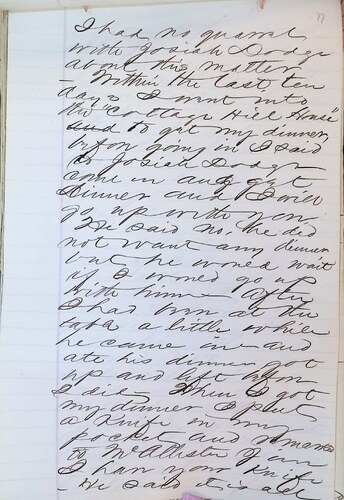 77
I had no quarrel
with Josiah Dodge
about this matter
- Within the last ten
days I went into
the "Cottage Hill House"
and to get my dinner,
before going in I said
to Josiah Dodge
come in and get
dinner and I will
go up with you.
He said no, he did
not want any dinner
but he would wait
if I would go up
with him - After
I had been at the
table a little while
he came in and
ate his dinner got
up and left before
I did. When I got
my dinner I put
a knife in my
pocket and remarked
to McAllister Jim
I have your knife
- He said it is all